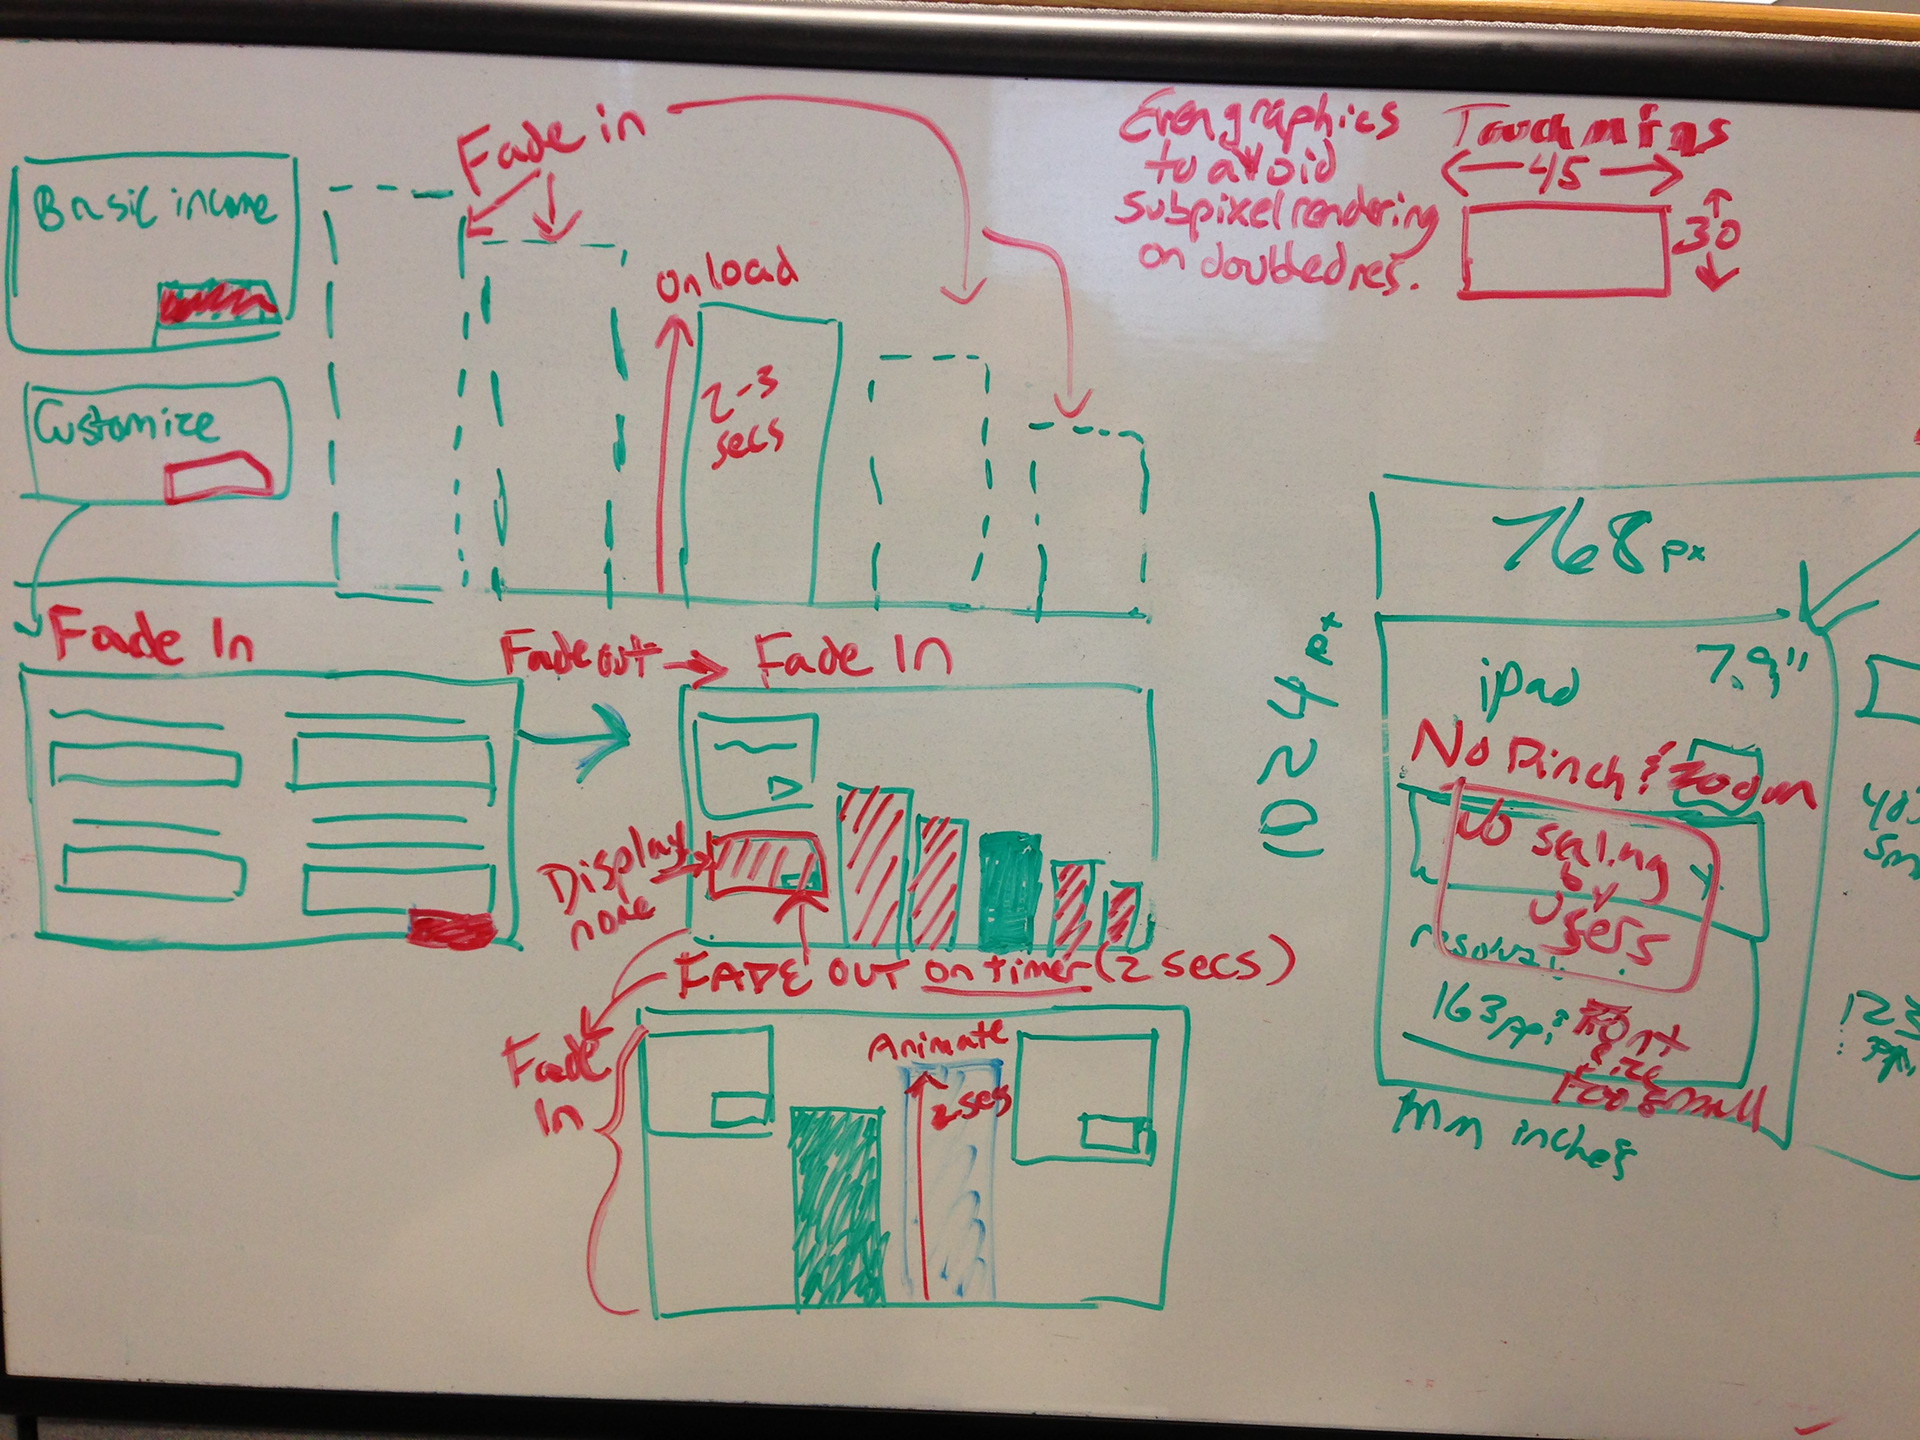 Fade in
Even graphics
to avoid
subpixel rendering
on doubled res.
Touch mins
45
30
Basic income
On load
2-3
secs
Customize
768 px
1024 px
Fade In
Fade out → Fade In
iPad
7.9"
No Pinch & Zoom
No scaling
by
users
Display
none
FADE OUT on timer (2 secs)
163 ppi
Font
size
too small
Fade
In
Animate
2 secs
mm inches